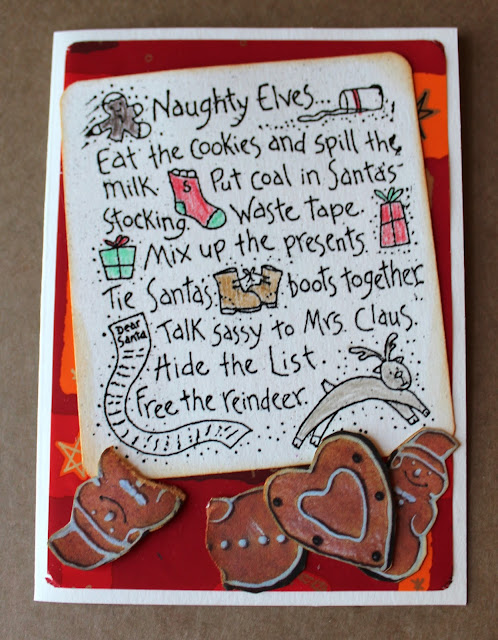 Naughty Elves...
Eat the cookies and spill the
milk. S Put coal in Santa's
stocking. Waste tape.
Mix up the presents.
Tie Santa's boots together.
Dear
Santa
Talk sassy to Mrs. Claus.
Hide the List.
Free the reindeer.